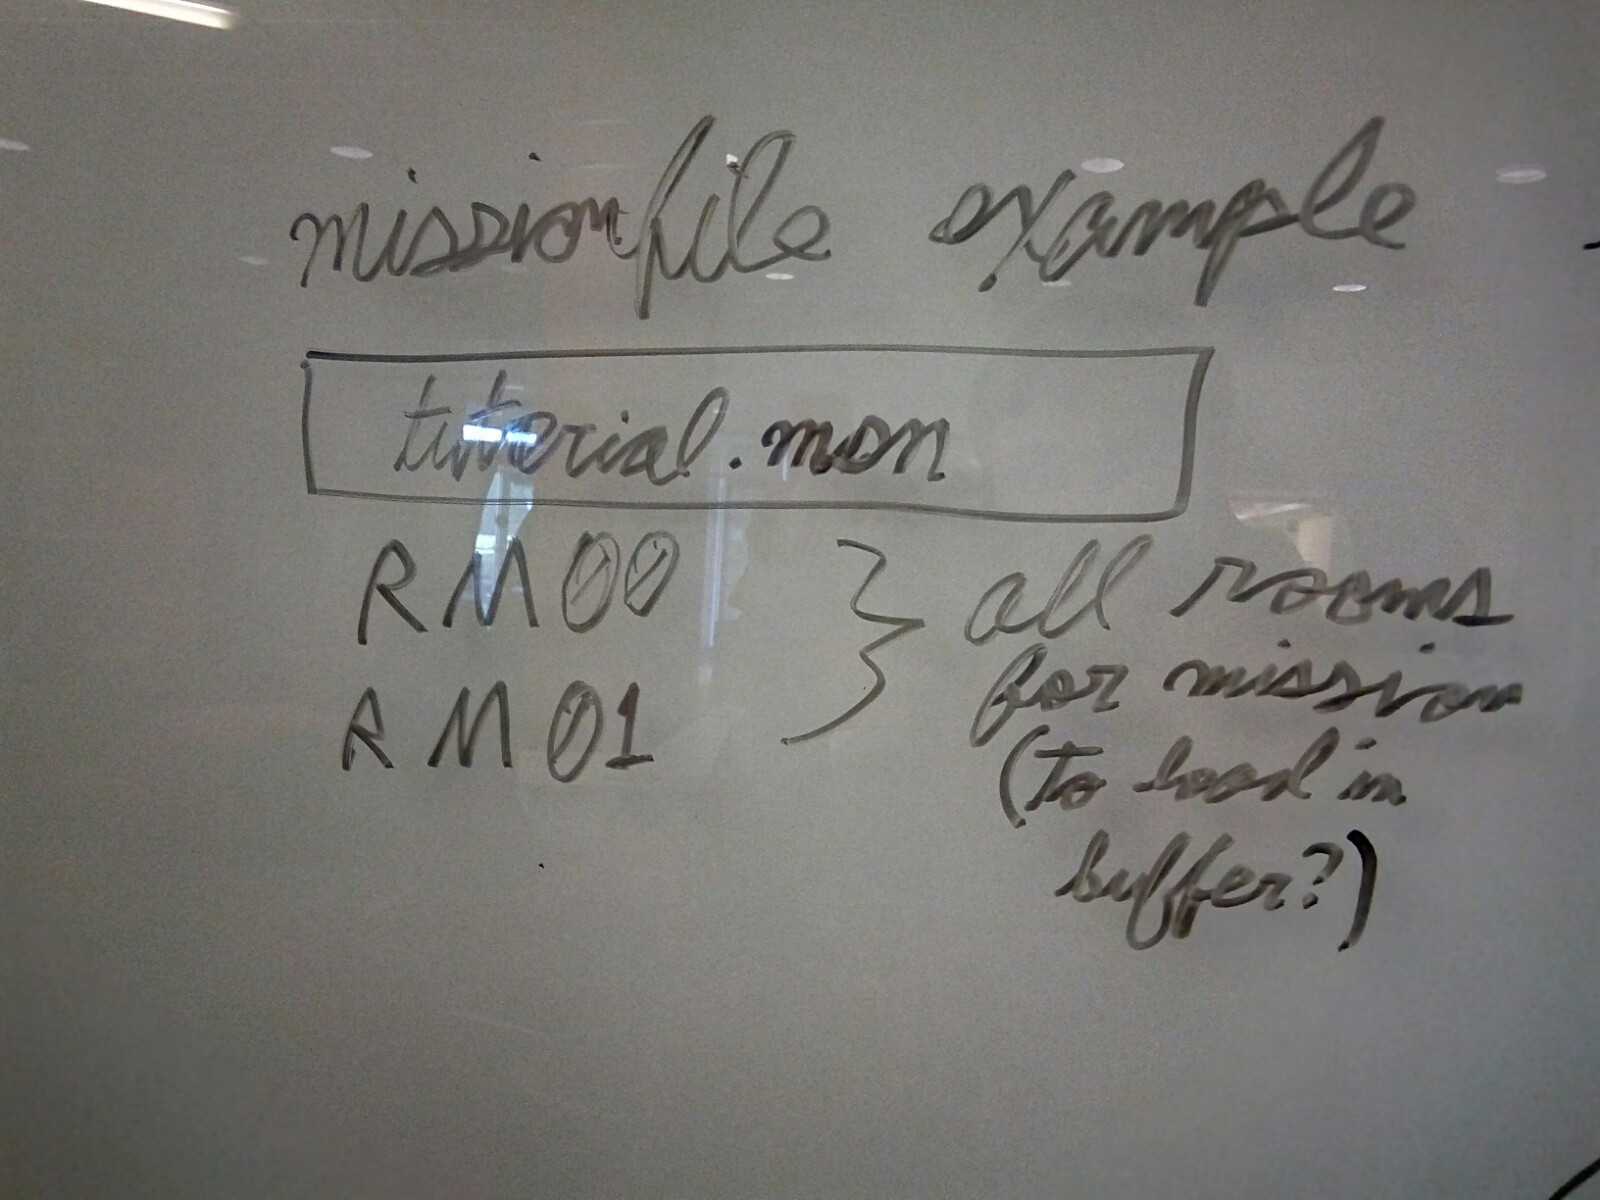 missionfile example
tutorial.msn
RM00
RM01
all rooms
for mission
(to load in
buffer?)